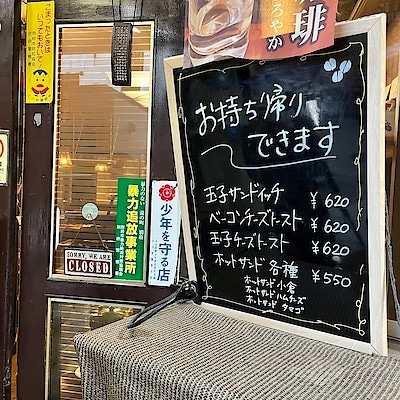 こまったときは
いつでもおいで
珈琲
ろやか
お持ち帰り
できます
玉子サンドイッチ ¥620
ベーコンチーズトースト ¥620
玉子チーズトースト ¥620
ホットサンド各種 ¥550
ホットサンド小倉
ホットサンドハムチーズ
ホットサンド タマゴ
暴力追放事業所
少年を守る店
SORRY, WE ARE
CLOSED